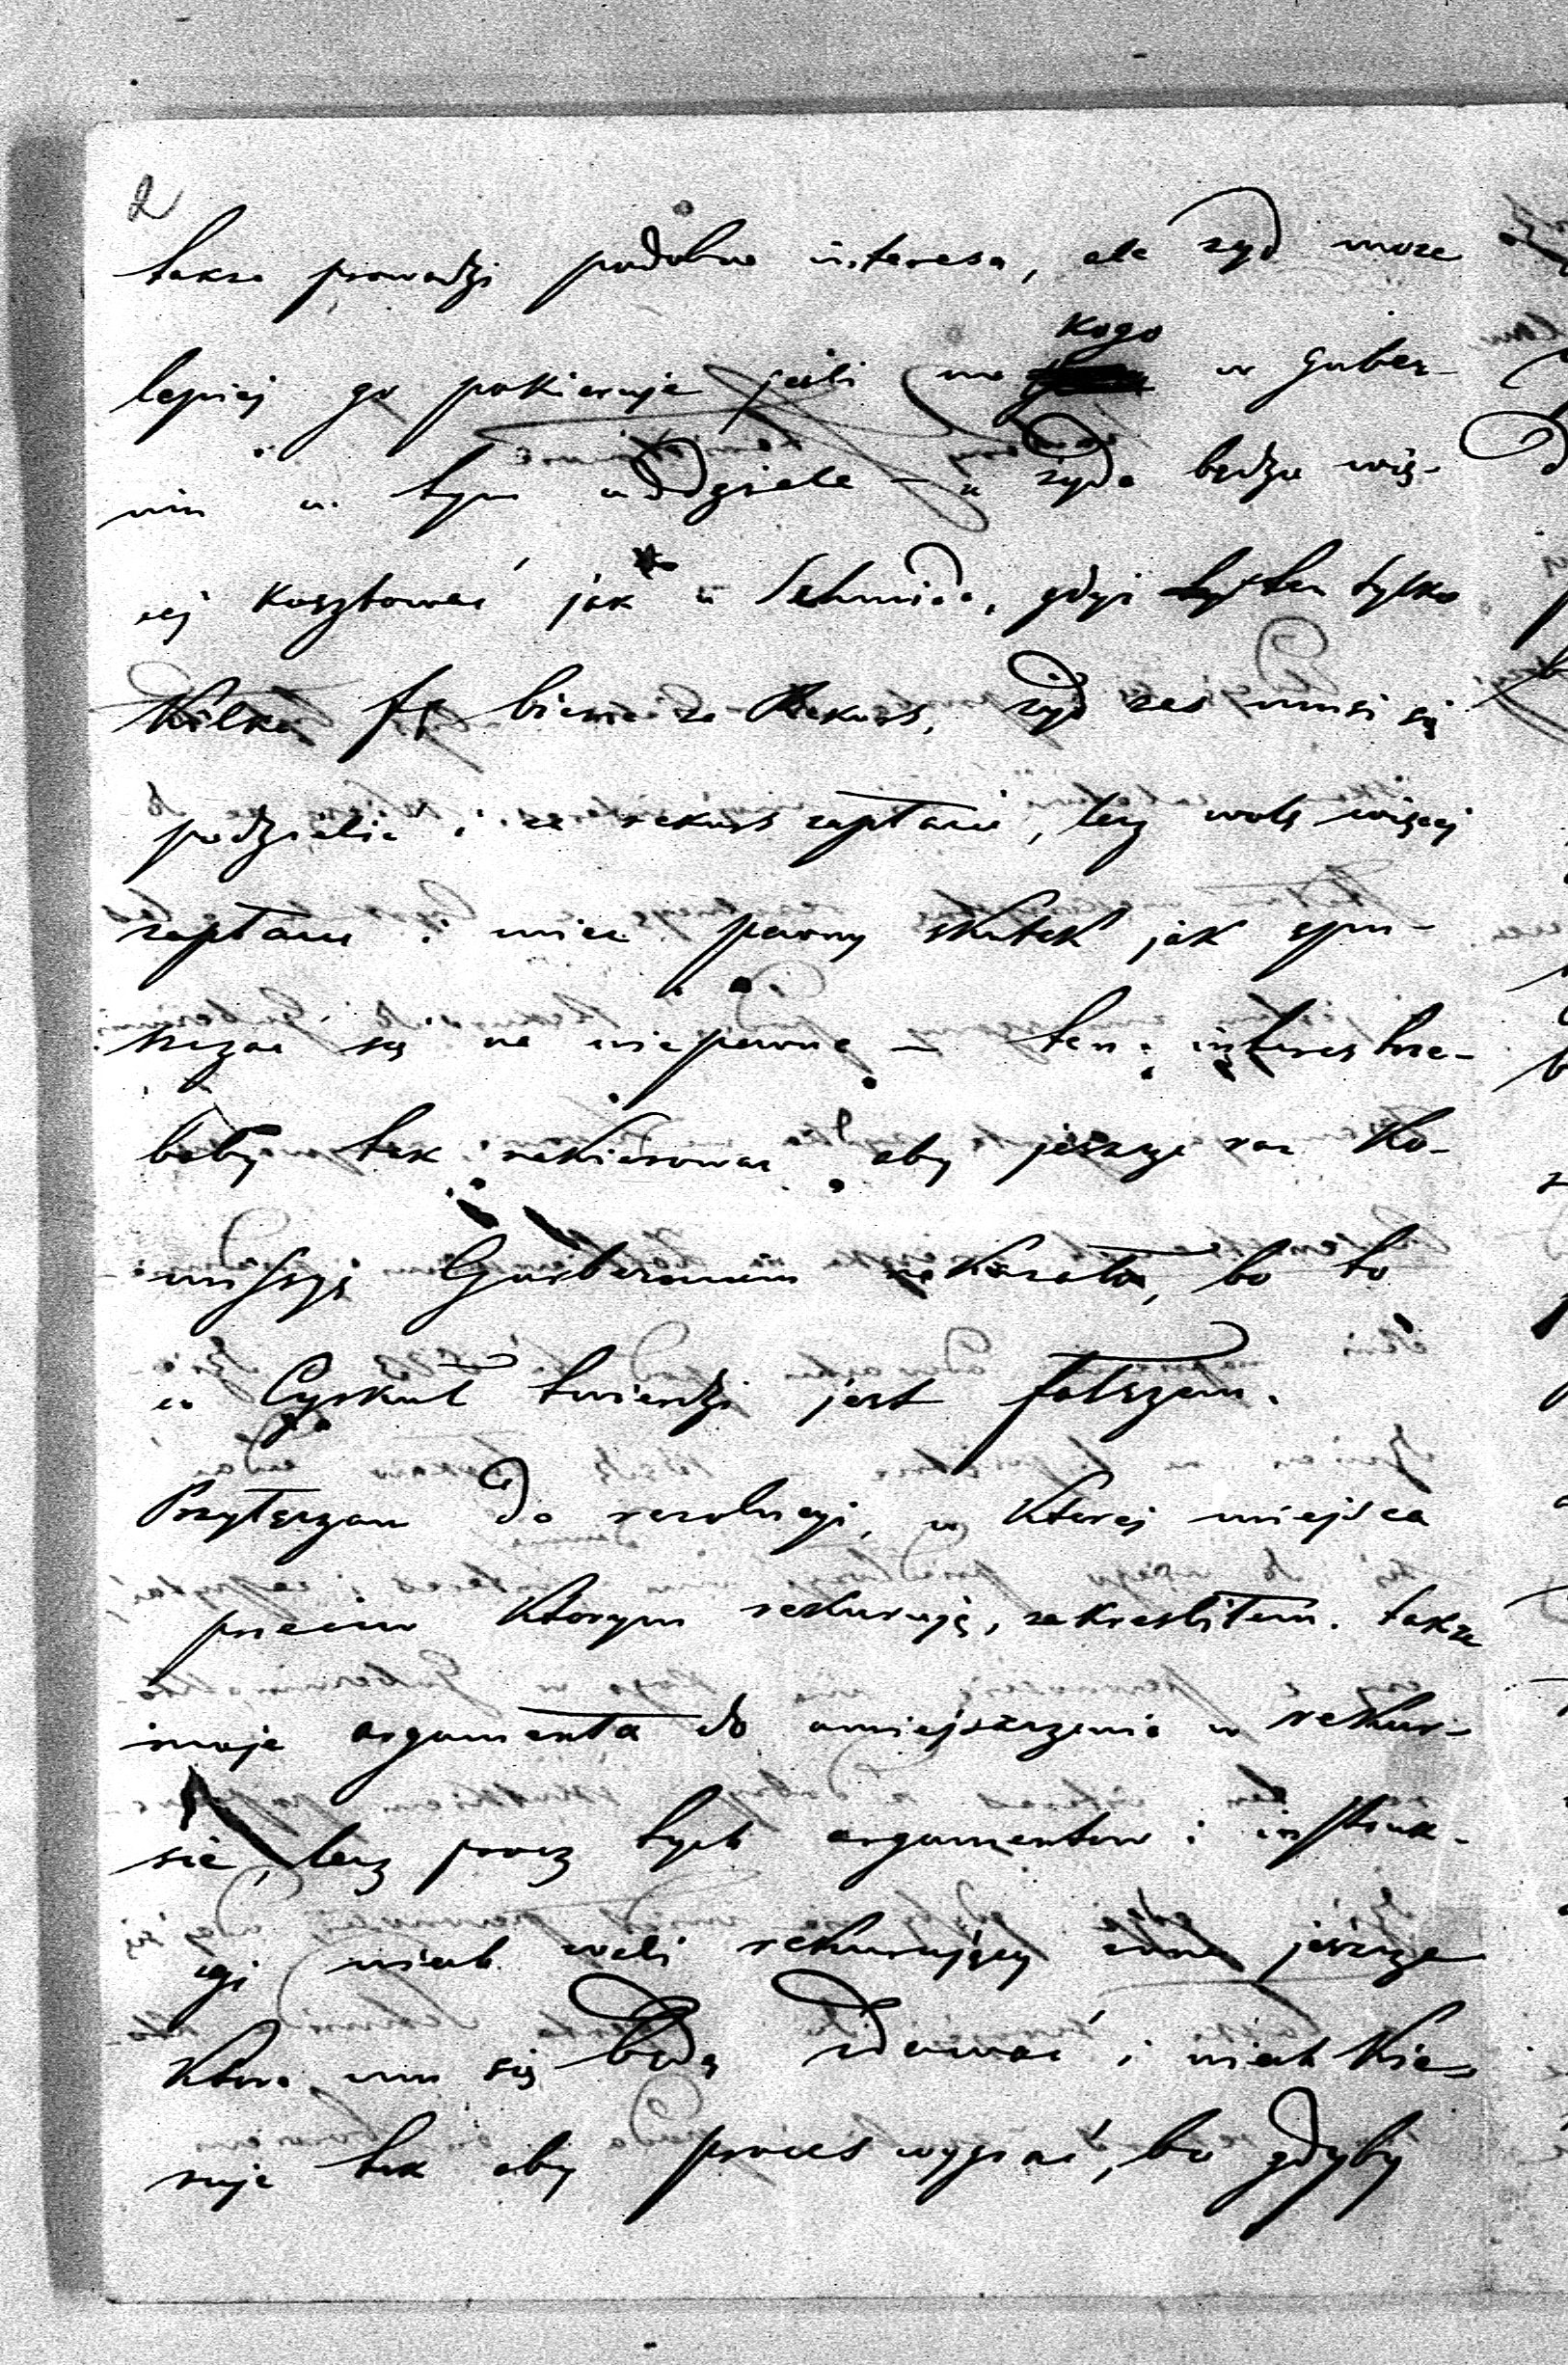 2
także prowadzi podobne interesa, ale żyd może
lepiej go pokieruje jeśli ma kogo w guber-
nium w tym oddziele – u żyda będzie wię-
cej kosztować jak u Schmida, gdyż ten tylko
kilka fr bierze za Rekurs, żyd zas musi się
podzielic i za rekurs zapłacic, lecz wolę więcej
zapłacic i miec pewny skutek jak spu-
szczac się na niepewne – ten interes trze-
baby tak nakierowac aby jeszcze raz Ko-
missyę Gubernium nakazało, bo to
co Cyrkuł twierdzi jest fałszem.
Przyłączam do rezolucyi, w ktorej miejsca
przeciw ktorym rekuruję, zakresliłem. także
moje argumenta do umiejszczenia w rekur-
sie, lecz procz tych argumentow i instruk-
cyi niech weli rekurujący inne jeszcze
ktore mu się będą zdawać i niech kie-
ruje tak aby proces wygrać, bo gdyby